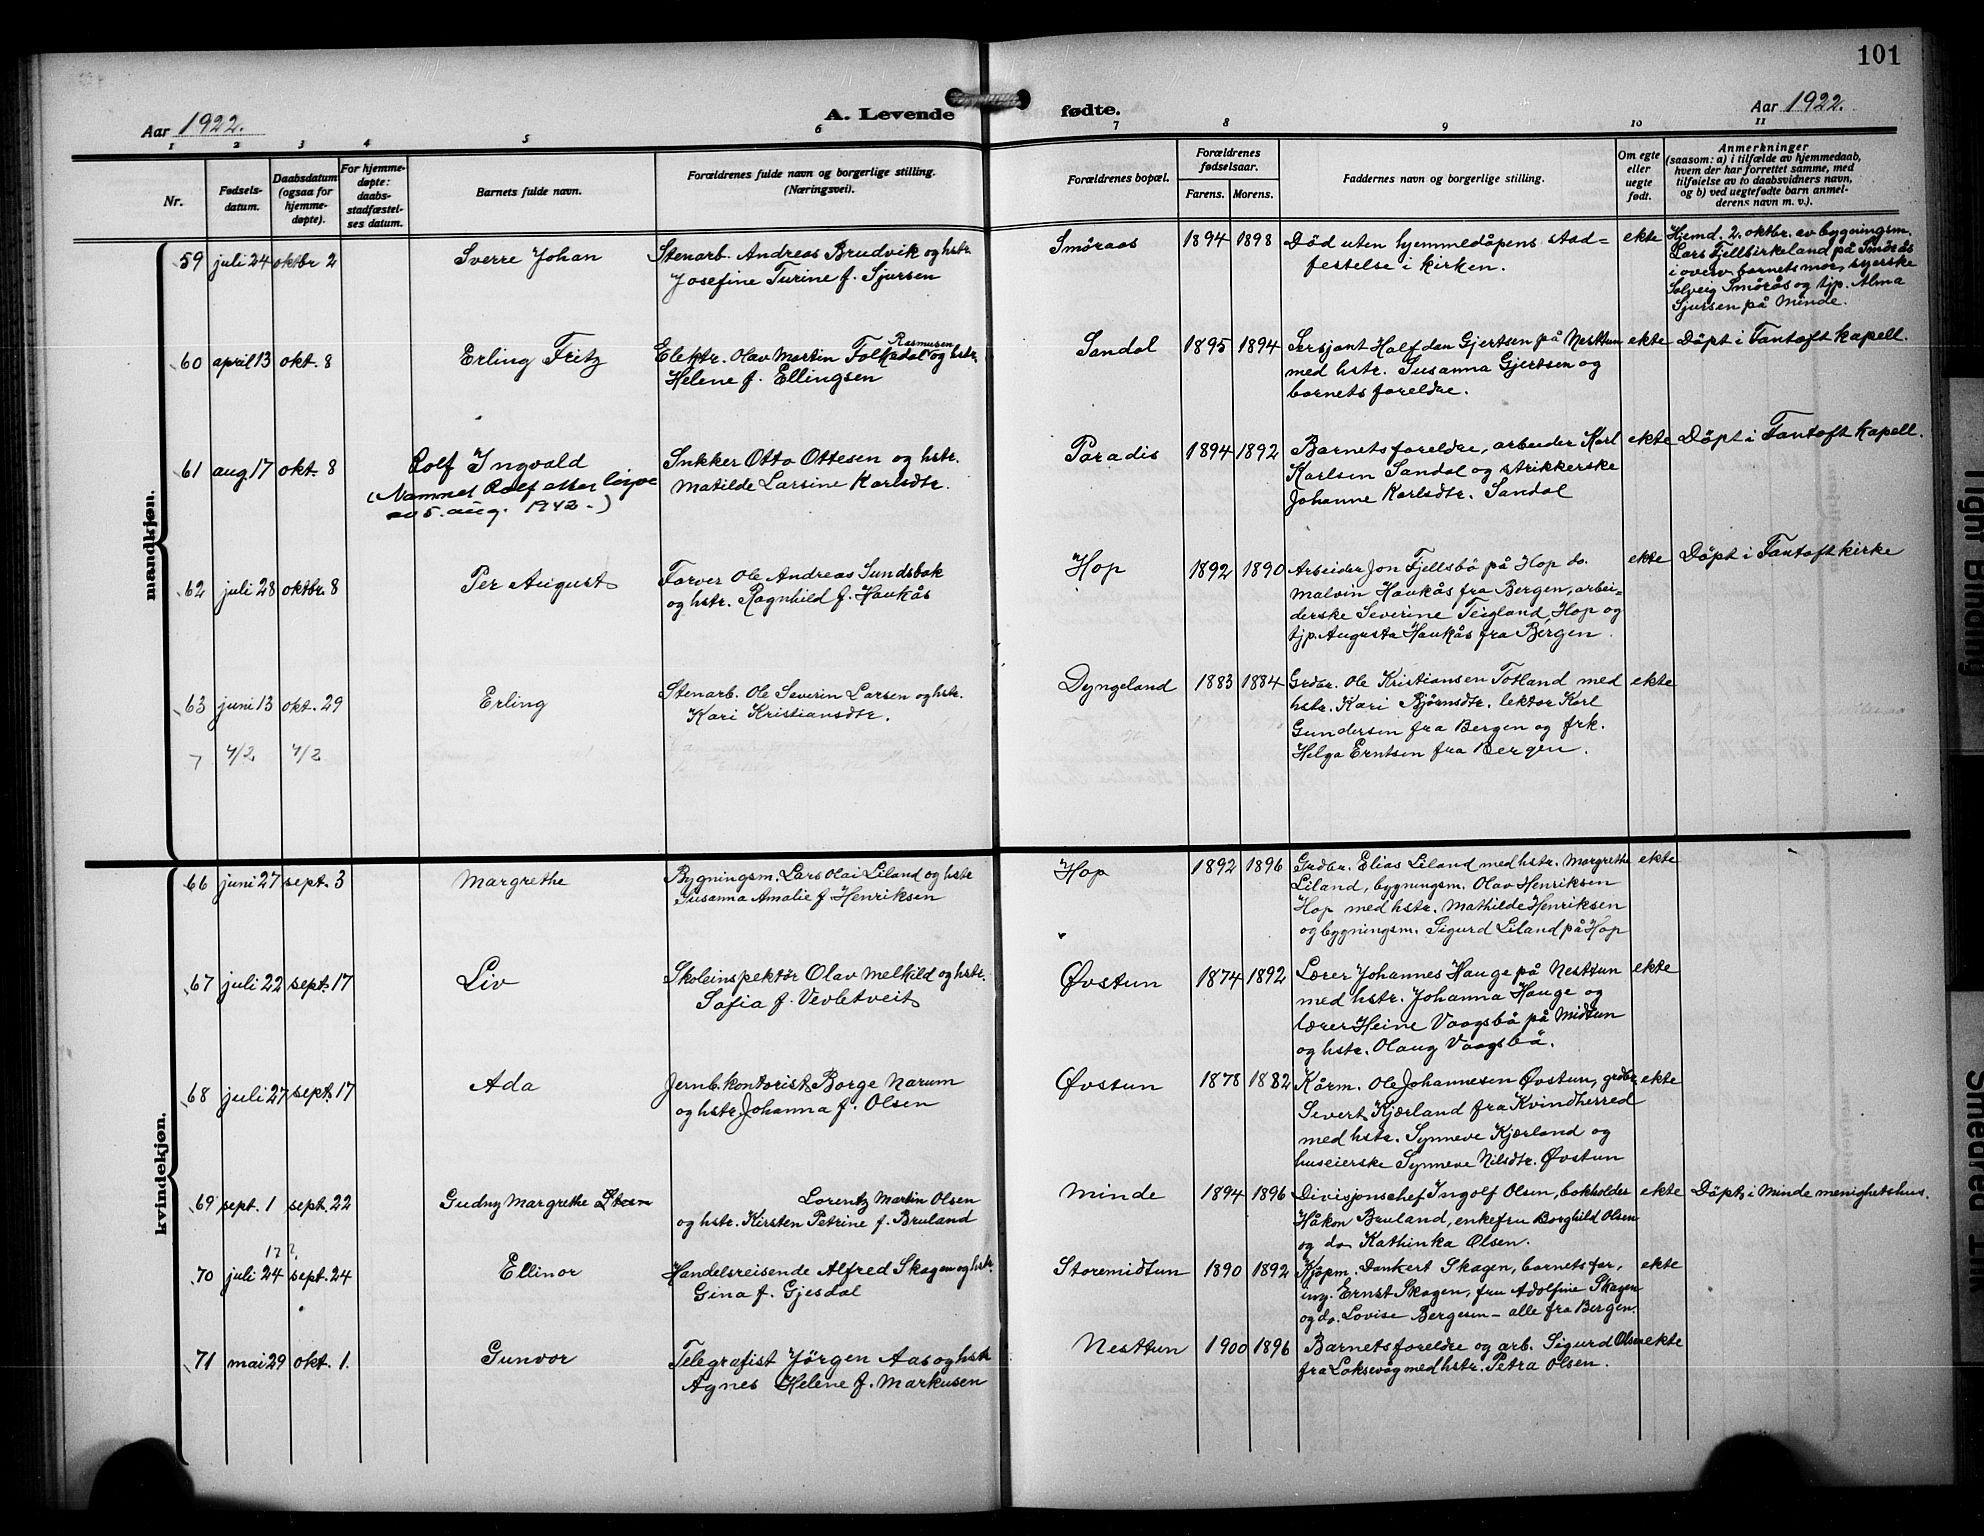 101
Aar 1922.
A. Levende fødte.
Aar 1922.
1 2 3 4 5 6 7 8 9 10 11
Nr.
Fødsels-
datum.
Daabsdatum
(ogsaa for
hjemme-
døpte).
For hjemme-
døpte:
daabs-
stadfæstel-
ses datum.
Barnets fulde navn.
Forældrenes fulde navn og borgerlige stilling.
(Næringsvei).
Forældrenes bopæl.
Forældrenes
fødselsaar.
Farens. Morens.
Faddernes navn og borgerlige stilling.
Om egte
eller
uegte
født.
Anmerkninger
(saasom: a) i tilfælde av hjemmedaab,
hvem der har forrettet samme, med
tilføielse av to daabsvidners navn,
og b) ved uegtefødte barn anmel-
derens navn m. v.).
mandkjøn.
59 juli 24 oktbr 2
Sverre Johan
Stenarb. Andreas Brudvik og hstr.
Josefine Turine f. Sjursen
Smöraas
1894 1898
Död uten hjemmedåpens stad=
festelse i kirken.
ekte
Hjemd. 2. oktbr. av bygningsm.
Lars Fjellbirkeland på Smörås
i overv. barnets mor, syerske
Solveig Smörås og tjp. Alma
Sjursen på Minde.
60 april 13 okt. 8
Erling Fritz
Rasmusen
Elektr. Olav Martin Folkedal og hstr.
Helene f. Ellingsen
Sandal
1895 1894
Sersjant Halfdan Gjertsen på Nesttun
med hstr. Susanna Gjertsen og
barnets foreldre.
ekte
Döpt i Fantoft kapell.
61 aug. 17 okt. 8
Rolf Ingvald
(Navnet Rolf etter lov
av 5. aug. 1942.)
Snkker Otto Ottesen og hstr.
Matilde Larsine Karlsdtr.
Paradis
1894 1892
Barnets foreldre, arbeider Karl
Karlsen Sandal og strikkerske
Johanne Karlsdtr. Sandal
ekte
Döpt i Fantoft kapell.
62 juli 28 oktbr. 8
Per August
Farver Ole Andreas Sundsbak
og hstr. Ragnhild f. Haukås
Hop
1892 1890
Arbeider Jon Fjellsbö på Hop do.
Malvin Haukås fra Bergen, arbei=
derske Severine Teigland, Hop og
tjp. Augusta Haukås fra Bergen.
ekte
Döpt i Fantoft kirke
63 juni 13 okt. 29
Erling
Stenarb. Ole Severin Larsen og hstr.
Kari Kristiansdtr.
Dyngeland
1883 1884
Grdbr. Ole Kristiansen Totland med
hstr. Kari Bjørnsdtr. lektor Karl
Gundersen fra Bergen og frk.
Helga Erntsen fra Bergen.
ekte
7 4/2 4/2
kvindekjøn.
66 juni 27 sept. 3
Margrethe
Bygningsm. Lars Olai Liland og hstr
Susanna Amalie f. Henriksen
Hop
1892 1896
Grdbr. Elias Liland med hstr. Margrethe
Liland, bygningsm. Olav Henriksen
Hop med hstr. Mathilde Henriksen
og bygningsm. Sigurd Liland på Hop
ekte
67 juli 22 sept. 17
Liv
Skoleinspektör Olav Melkild og hstr.
Sofia f. Vevletveit
Øvstun
1874 1892
Lærer Johannes Hauge på Nesttun
med hstr. Johanna Hauge og
lærer Heine Vaagsbö på Midtun
og hstr. Olaug Vaagsbö.
ekte
68 juli 27 sept. 17
Ada
Jernb. kontorist Borge Narum
og hstr Johanna f. Olsen
Øvstun
1878 1882
Kårm. Ole Johannesen Øvstun, grdbr.
Severt Kjærland fra Kvindherred
med hstr. Synneve Kjærland og
huseierske Synneve Nilsdtr. Øvstun
ekte
69 sept. 1 sept. 22
Gudny Margrethe
Lorentz Martin Olsen
og hstr. Kirsten Petrine f. Bruland
Minde
1894 1896
Divisjonschef Ingolf Olsen, bokholder
Håkon Bruland, enkefru Borghild Olsen
og do Kathinka Olsen.
ekte
Döpt i Minde menighetshus.
17 ?
70 juli 24 sept. 24
Ellinor
Handelsreisende Alfred Skagen og hstr.
Gina f. Gjesdal
Storemidtun
1890 1892
Kjøpm. Dankert Skagen, barnets far,
ing. Ernst Skagen, fru Adolfine Skagen
og do. Lovise Bergesen – alle fra Bergen.
ekte
71 mai 29 okt. 1.
Gunvor
Telegrafist Jörgen Aas og hstr
Agnes Helene f. Markusen
Nesttun
1900 1896
Barnets foreldre og arb. Sigurd Olsen
fra Laksevåg med hstr. Petra Olsen.
ekte
Tight Binding
Smeared Ink